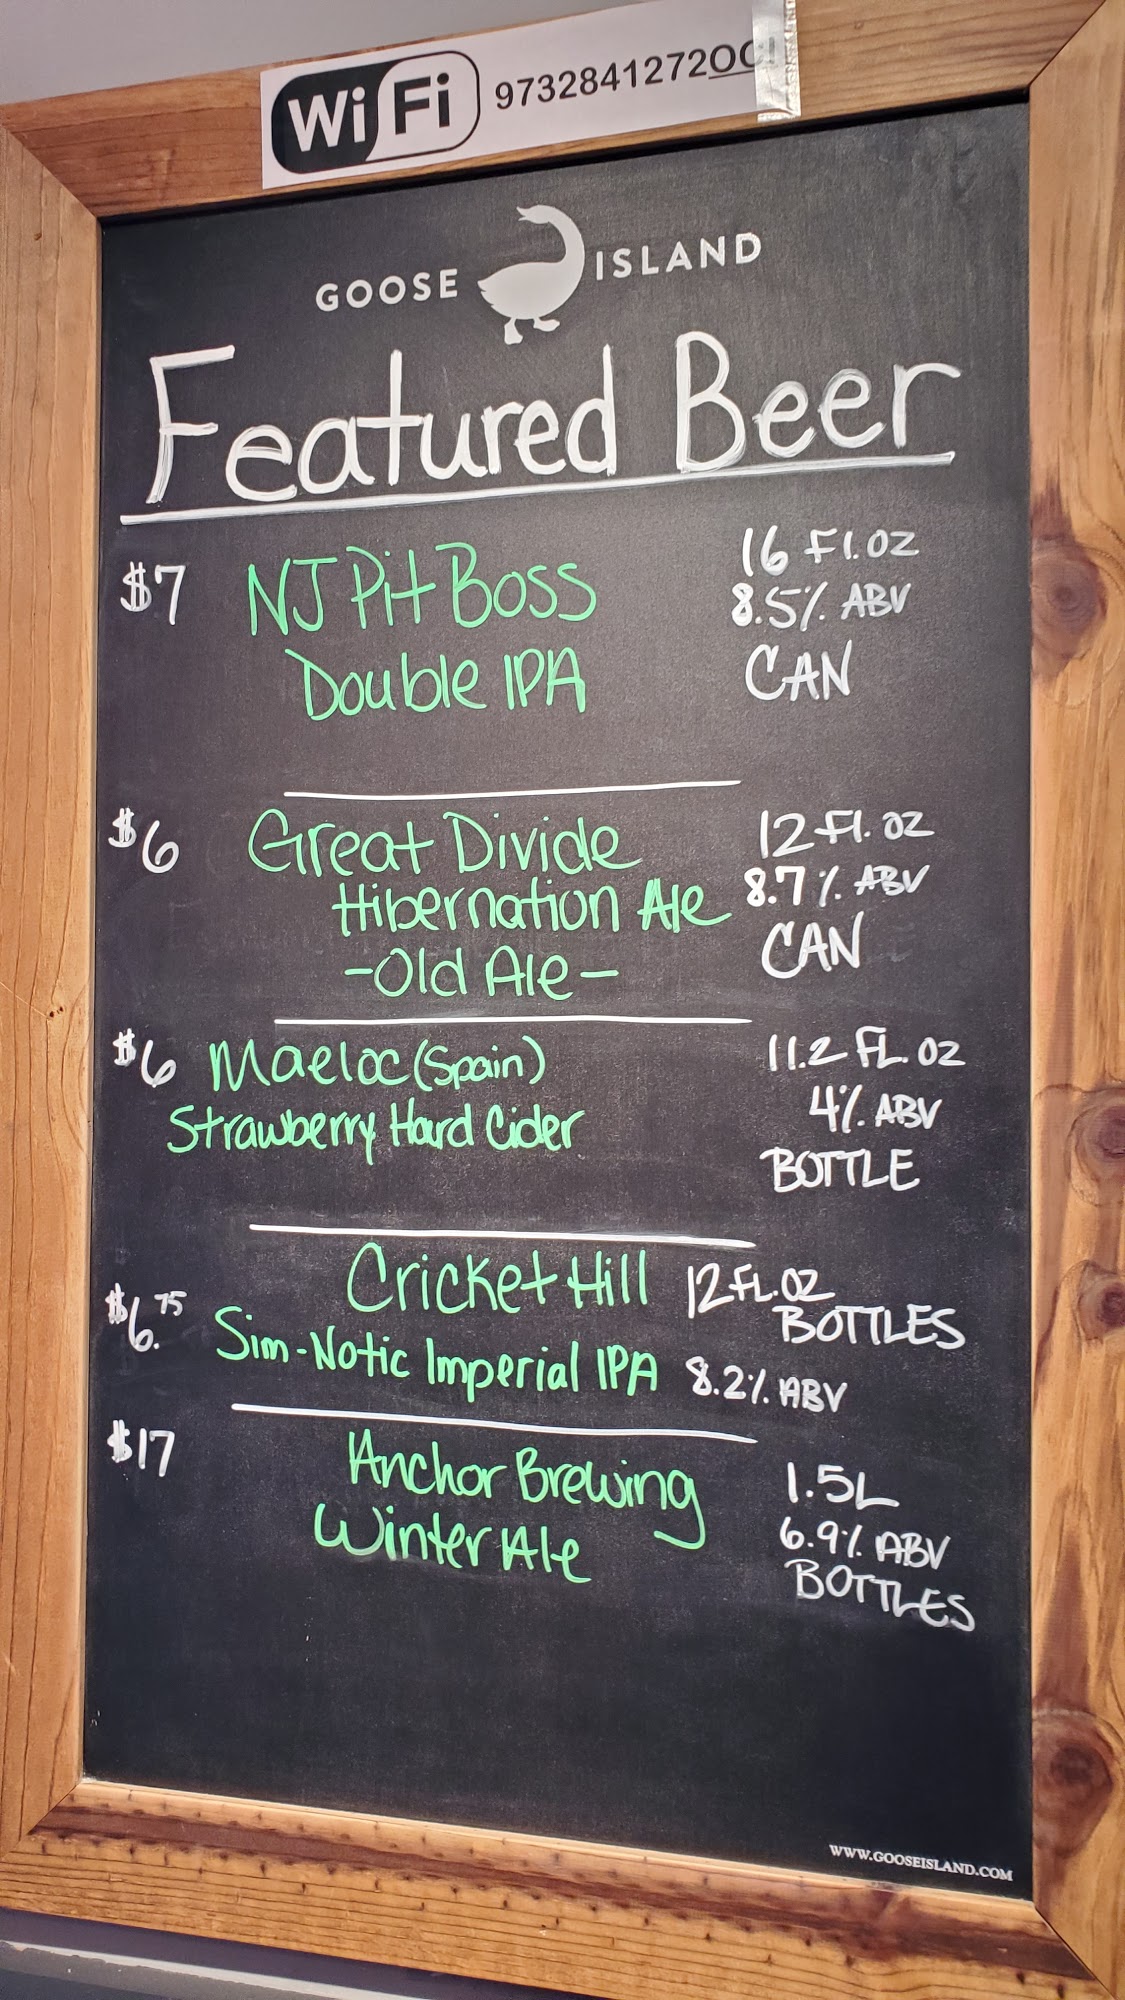 WiFi
GOOSE ISLAND
Featured Beer
$7 NJ Pit Boss 16 Fl.oz
Double IPA 8.5% ABV
CAN
$6 Great Divide 12 Fl.oz
Hibernation Ale 8.7% ABV
-Old Ale- CAN
$6 Maeloc (Spain) 11.2 FL.oz
Strawberry Hard Cider 4% ABV
BOTTLE
$6.75 Cricket Hill 12 FL.oz
BOTTLES
Sim-Notic Imperial IPA 8.2% ABV
$17 Anchor Brewing 1.5L
Winter Ale 6.9% ABV
BOTTLES
WWW.GOOSEISLAND.COM